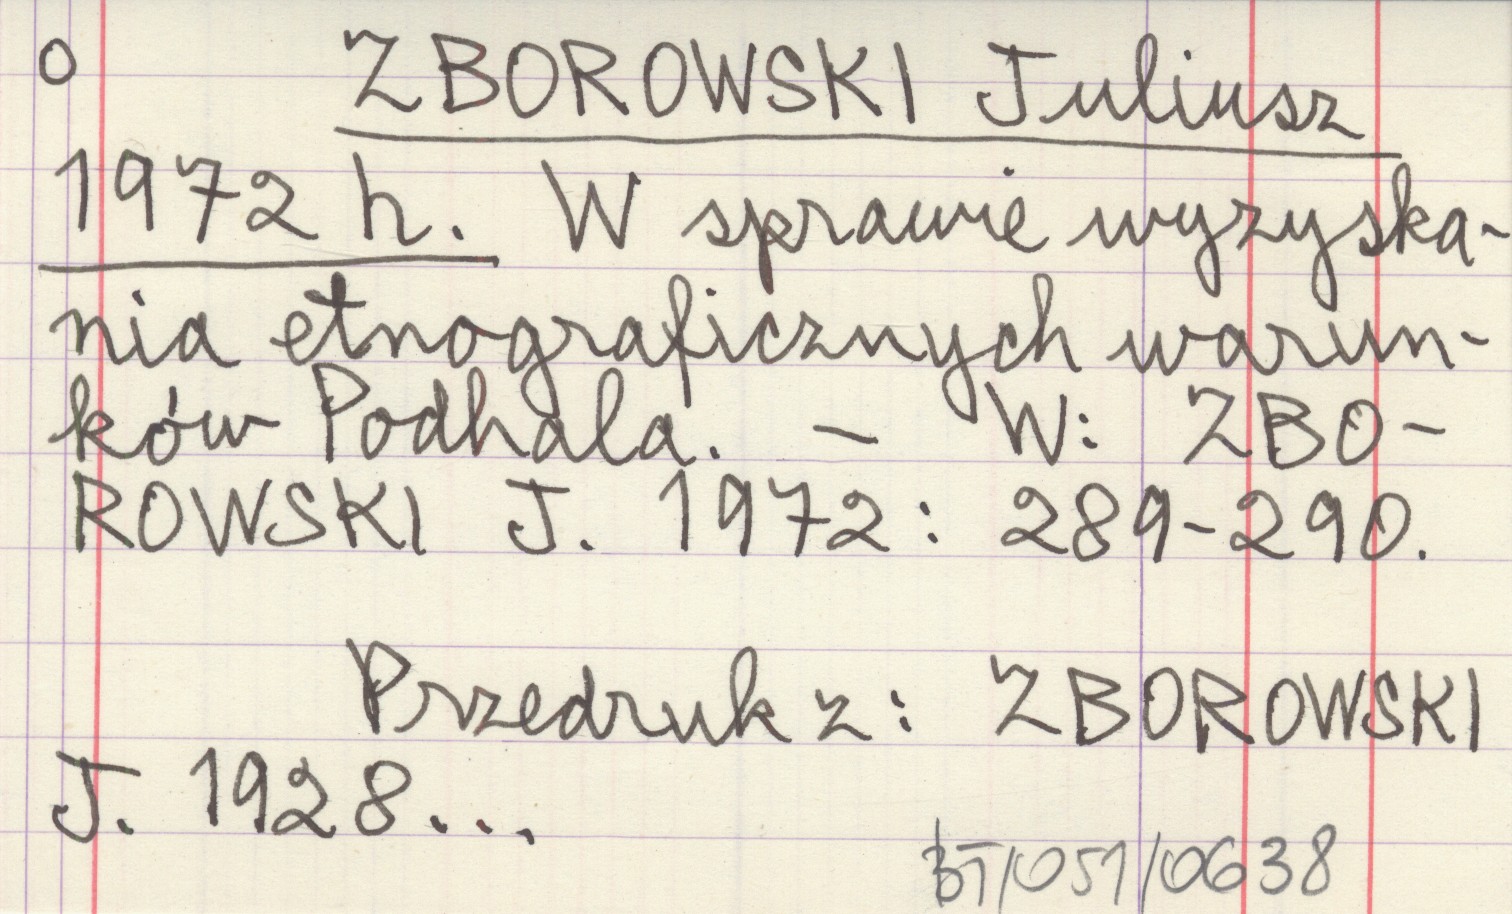 o ZBOROWSKI Juliusz
1972 h. W sprawie wyzyska-
nia etnograficznych warun-
ków Podhala. – W: ZBO-
ROWSKI J. 1972: 289-290.
Przedruk z: ZBOROWSKI
J. 1928...
BT/051/0638